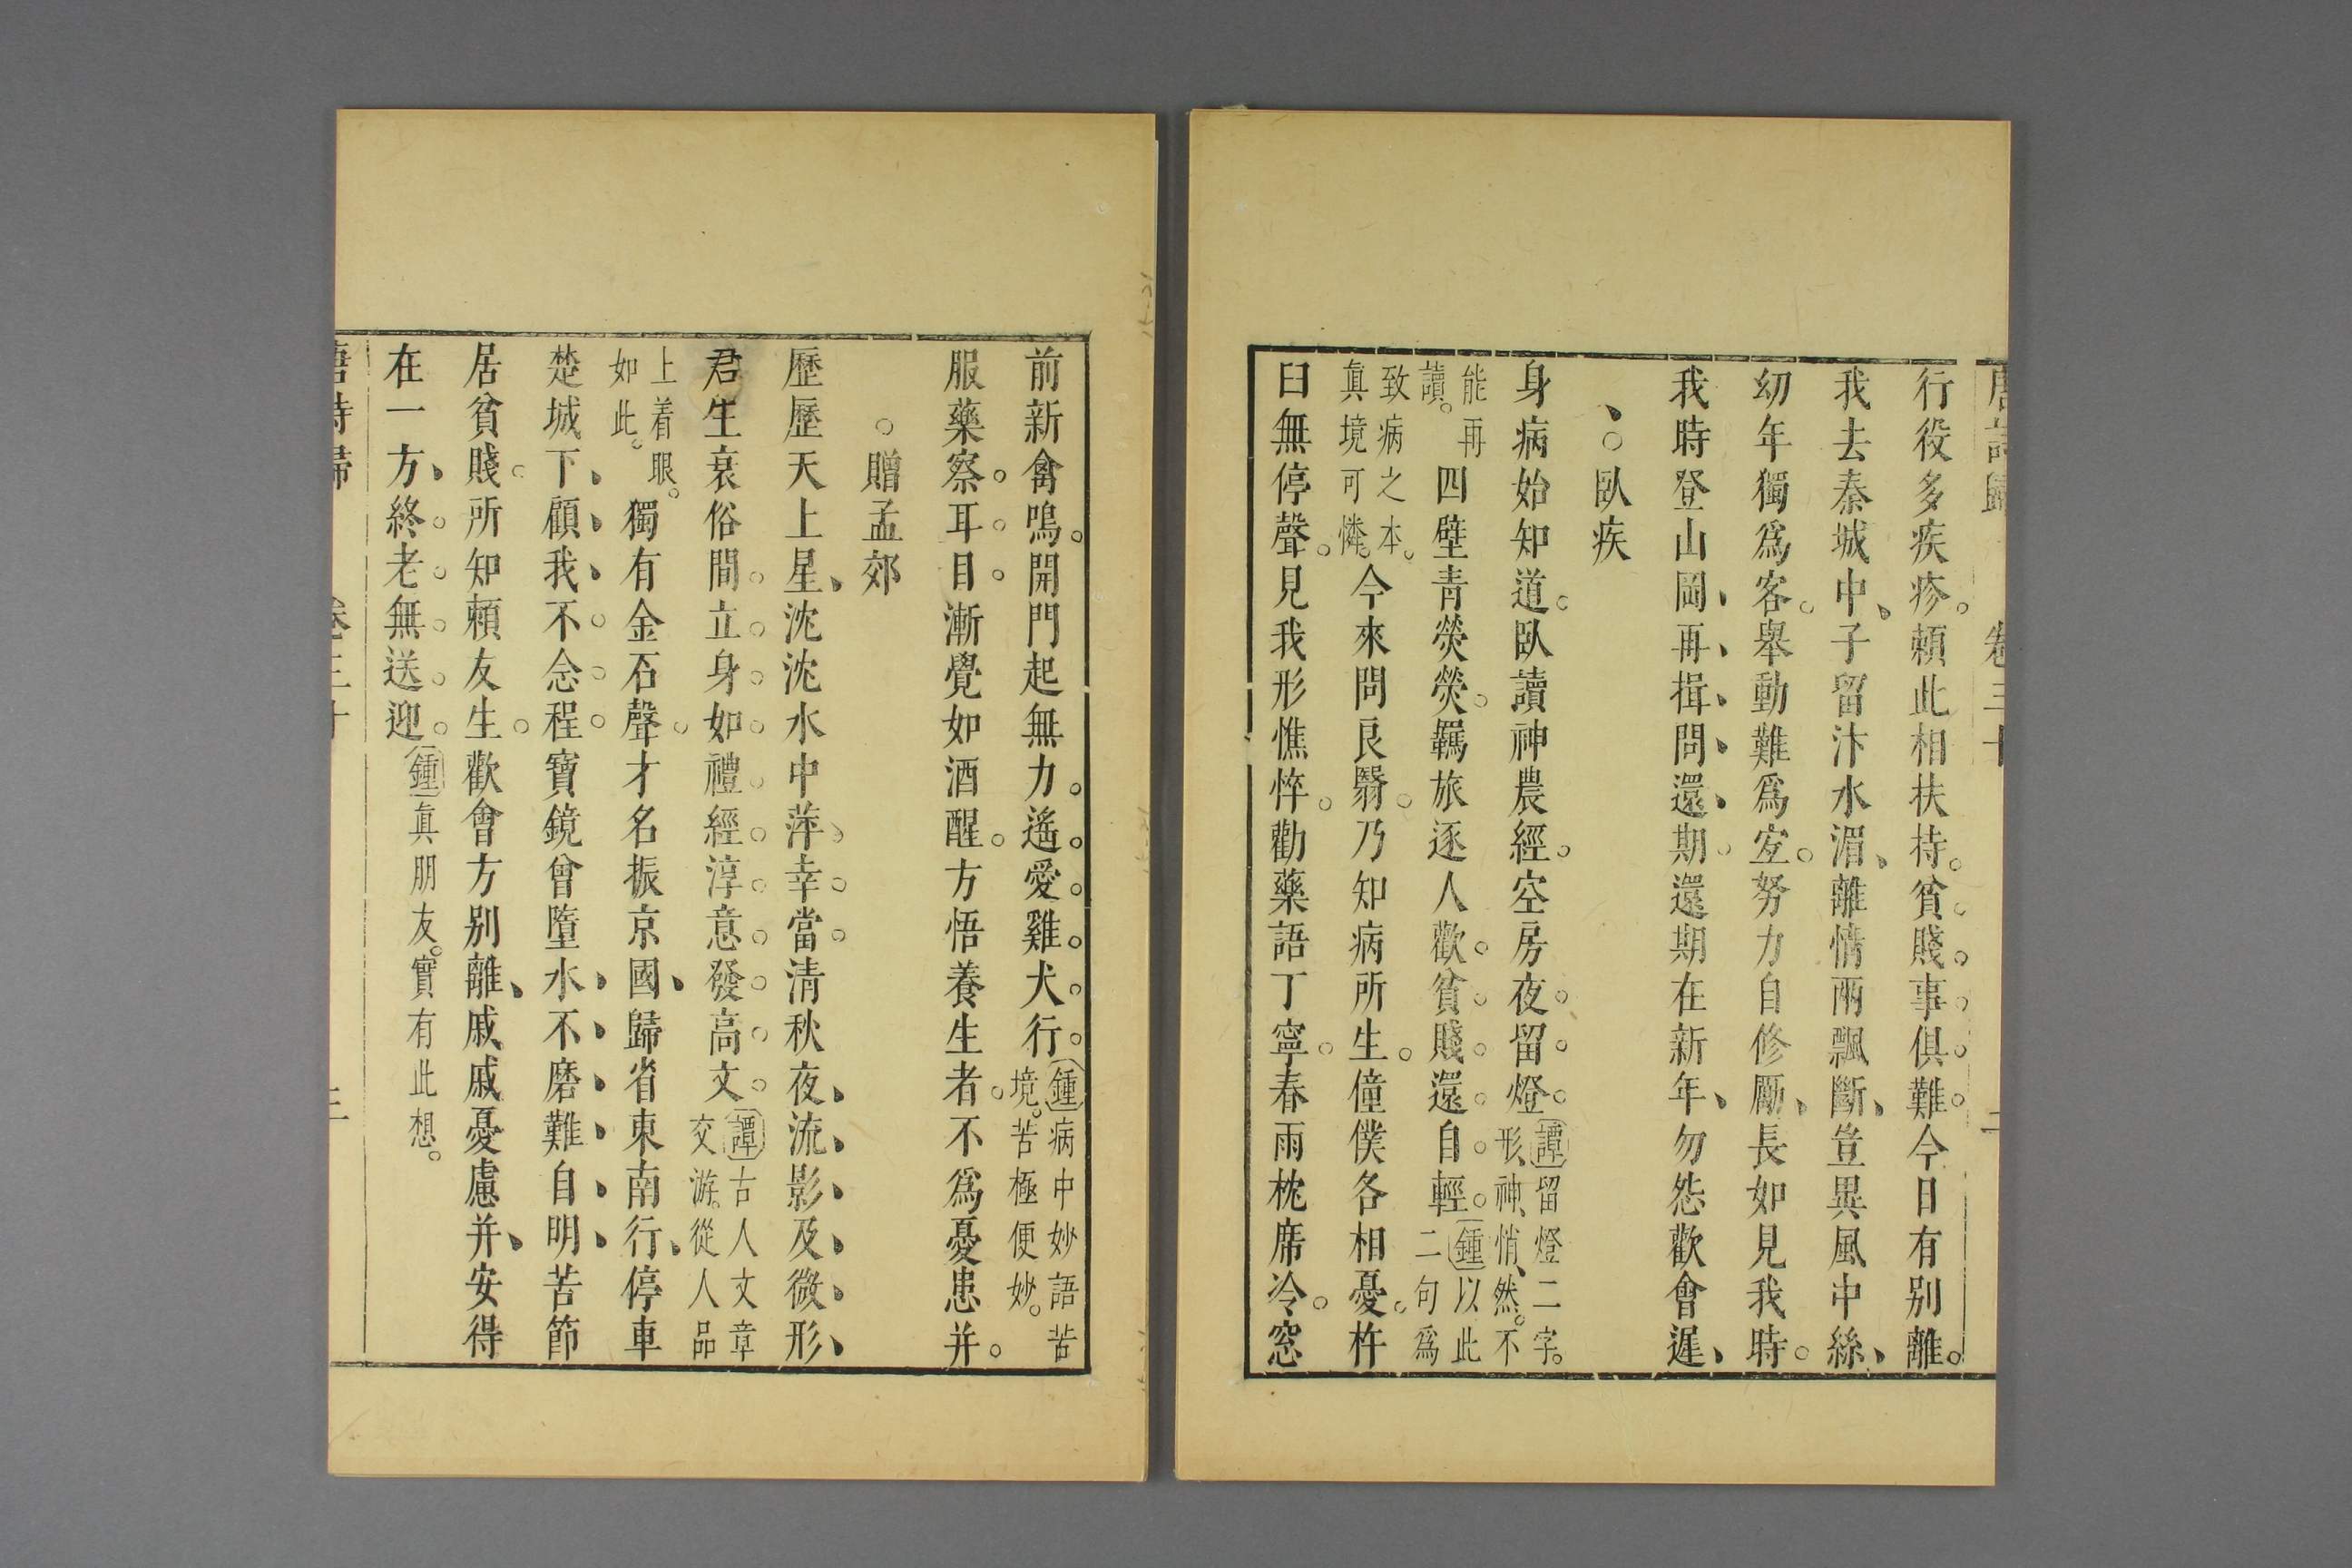 唐詩歸 卷三十 二
行役多疾疹。頼此相扶持。貧賤事俱難。今日有别離。
我去秦城中、子留汴水湄、離情兩飄斷、豈異風中絲、
幼年獨爲客。舉動難爲宐。努力自修勵、長如見我時。
我時登山岡、再揖問還期。還期在新年、勿怨歡會遲、
臥疾
身病始知道。臥讀神農經。空房夜留燈。譚留燈二字。形神、悄然。不
能再讀。四壁青熒熒。羈旅逐人歡。貧賤還自輕。鍾以此二句爲
致病之本。眞境可憐。今來問良醫。乃知病所生。僮僕各相憂。杵
臼無停聲。見我形憔悴。勸藥語丁寧。春雨枕席冷。窓
前新禽鳴。開門起無力。遙愛雞犬行。鍾病中妙語苦境。苦極便妙。
服藥察耳目。漸覺如酒醒。方悟養生者。不爲憂患并。
贈孟郊
歷歷天上星、沈沈水中萍、幸當清秋夜、流影及微形、
君生衰俗間。立身如禮經。淳意發高文。譚古人文章交游。從人品
上着眼。如此。獨有金石聲。才名振京國、歸省東南行、停車
楚城下、顧我不念程。寶鏡曾墮水、不磨難自明、苦節
居貧賤。所知頼友生。歡會方别離、戚戚憂慮并、安得
在一方、終老無送迎。鍾眞朋友。實有此想。
唐詩歸 卷三十 三